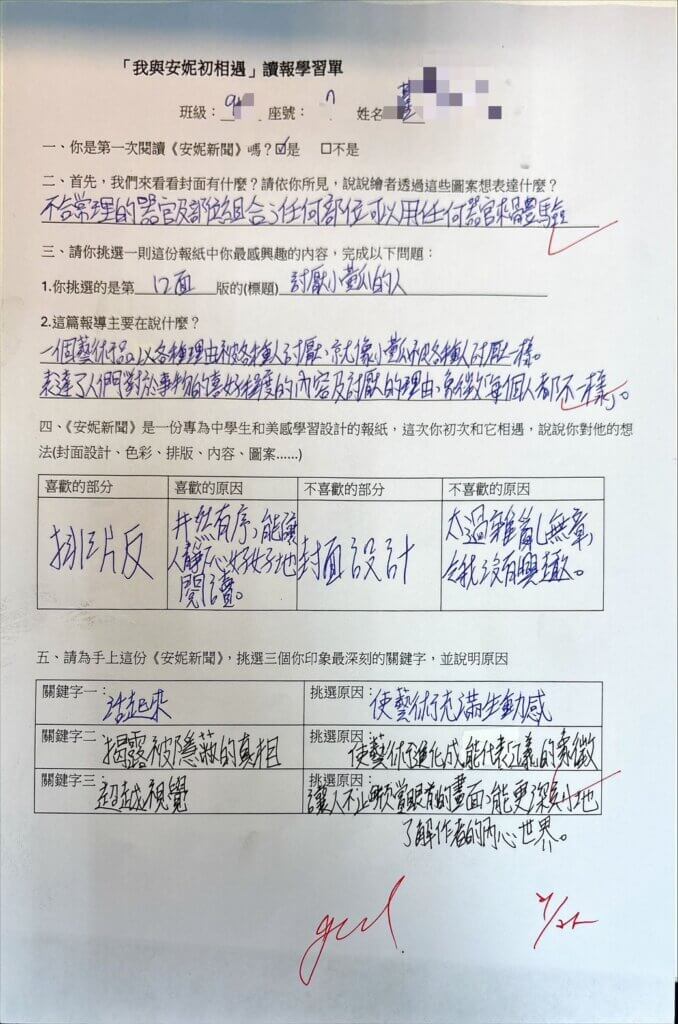 「我與安妮初相遇」讀報學習單
班級： 座號： 姓名
一、你是第一次閱讀《安妮新聞》嗎？☑是 □不是
二、首先，我們來看看封面有什麼？請依你所見，說說繪者透過這些圖案想表達什麼？
不合常理的器官及部位組合；任何部位可以用任何器官來體驗
三、請你挑選一則這份報紙中你最感興趣的內容，完成以下問題：
1.你挑選的是第 口面 版的(標題) 討厭小黃瓜的人
2.這篇報導主要在說什麼？
一個藝術品，以各種理由被各種人討厭，就像小黃瓜被各種人討厭一樣。
表達了人們對於事物的喜好程度的內容及討厭的理由，象徵「每個人都不一樣」。
四、《安妮新聞》是一份專為中學生和美感學習設計的報紙，這次你初次和它相遇，說說你對他的想
法(封面設計、色彩、排版、內容、圖案……)
喜歡的部分 喜歡的原因 不喜歡的部分 不喜歡的原因
排版 井然有序，能讓人靜下心好好地閱讀。 封面設計 太過雜亂無章，令我沒有興趣。
五、請為手上這份《安妮新聞》，挑選三個你印象最深刻的關鍵字，並說明原因
關鍵字一：活起來 挑選原因：使藝術充滿生動感
關鍵字二：揭露被隱蔽的真相 挑選原因：使藝術進化成能代表正義的象徵
關鍵字三：超越視覺 挑選原因：讓人不止欣賞眼前的畫面，能更深入地
了解作者的內心世界。
good